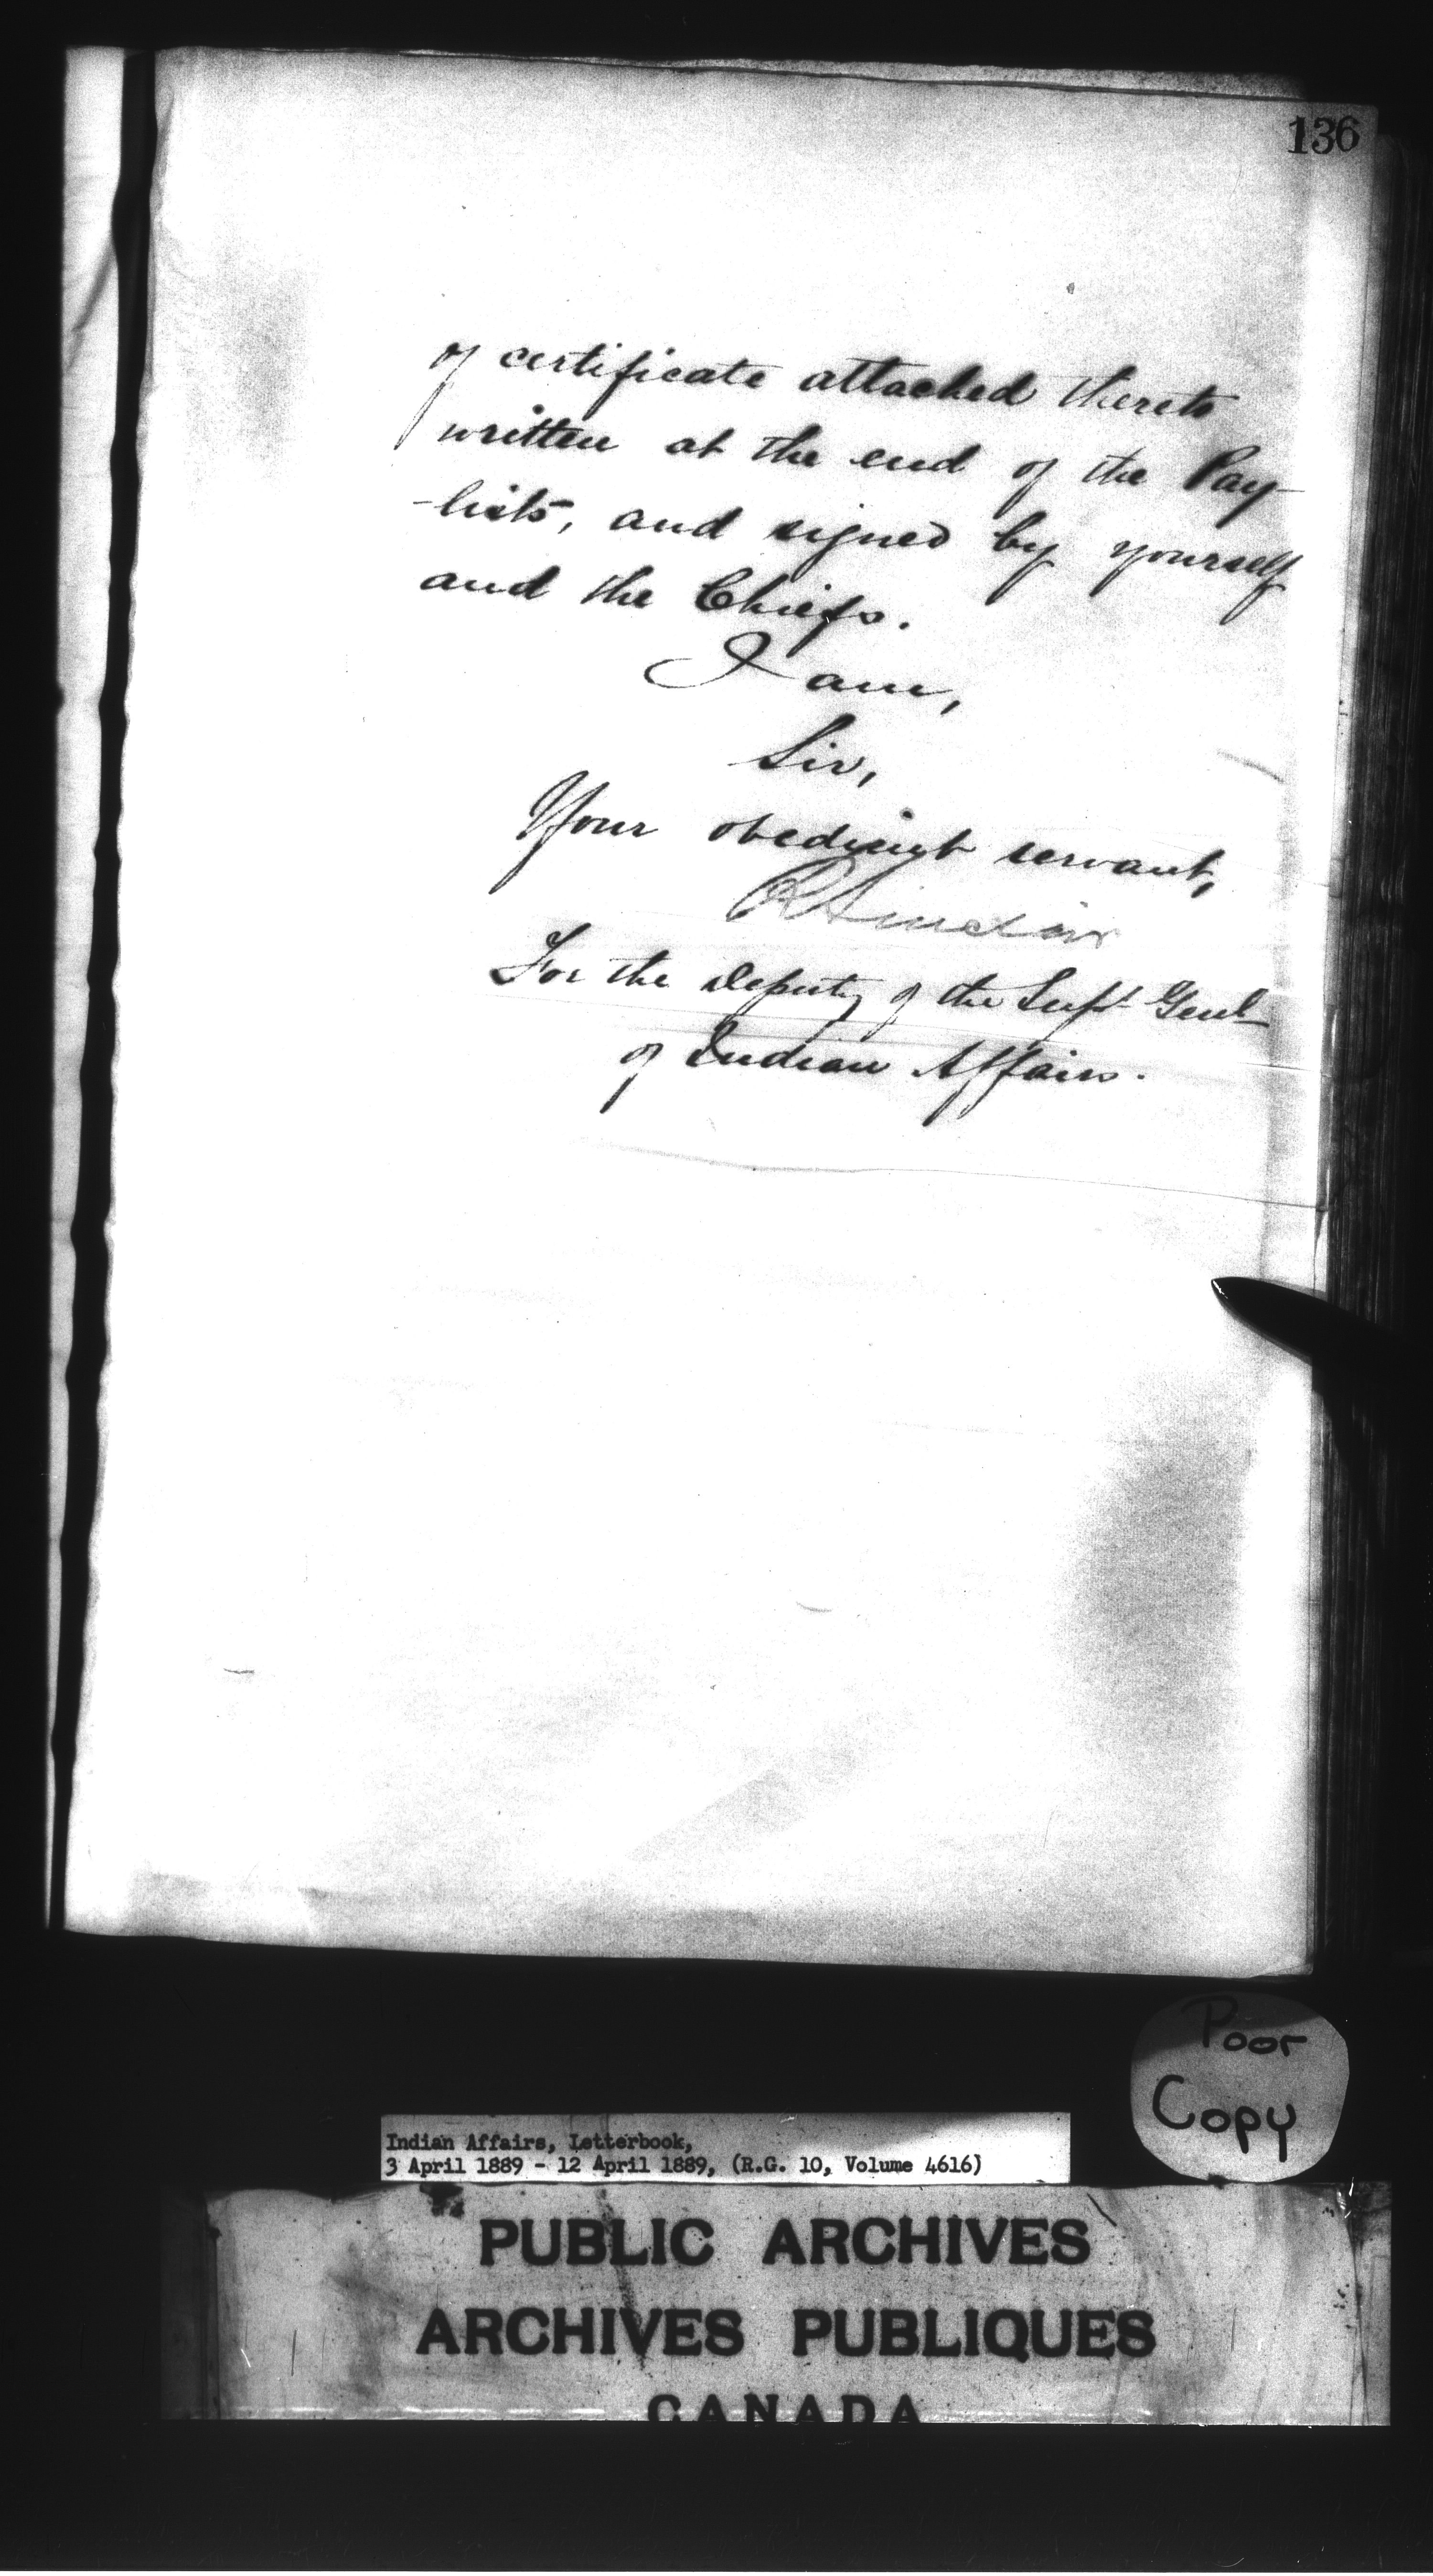 136
of certificate attached thereto
written at the end of the Pay-
-lists, and signed by yourself
and the Chiefs.
I am,
Sir,
Your obedient servant,
R Sinclair
For the Deputy of the Supt Genl
of Indian Affairs.
Poor
Copy
Indian Affairs, Letterbook,
3 April 1889 - 12 April 1889, (R.G. 10, Volume 4616)
PUBLIC ARCHIVES
ARCHIVES PUBLIQUES
CANADA